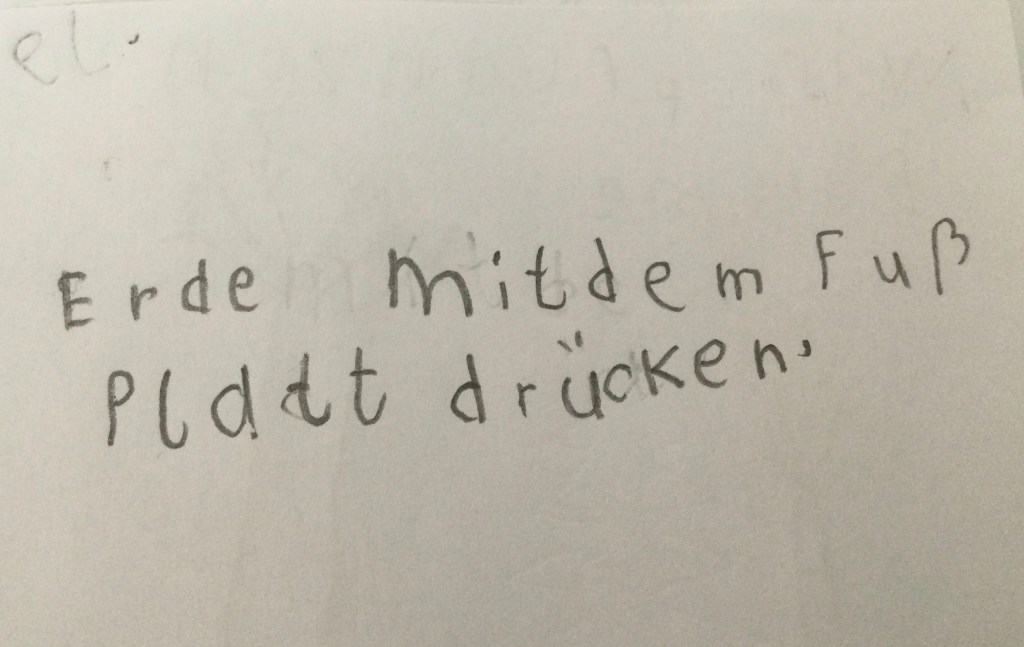 el.
Erde mitdem Fuß
Pladt drücken.